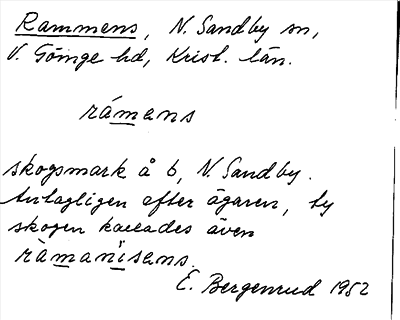 Rammens, N. Sandby sn,
V. Göinge hd, Krist. län.
rámens
skogsmark å 6, N. Sandby.
Antagligen efter ägaren, ty
skogen kallades även
ràmanisens.
E. Bergenrud 1952